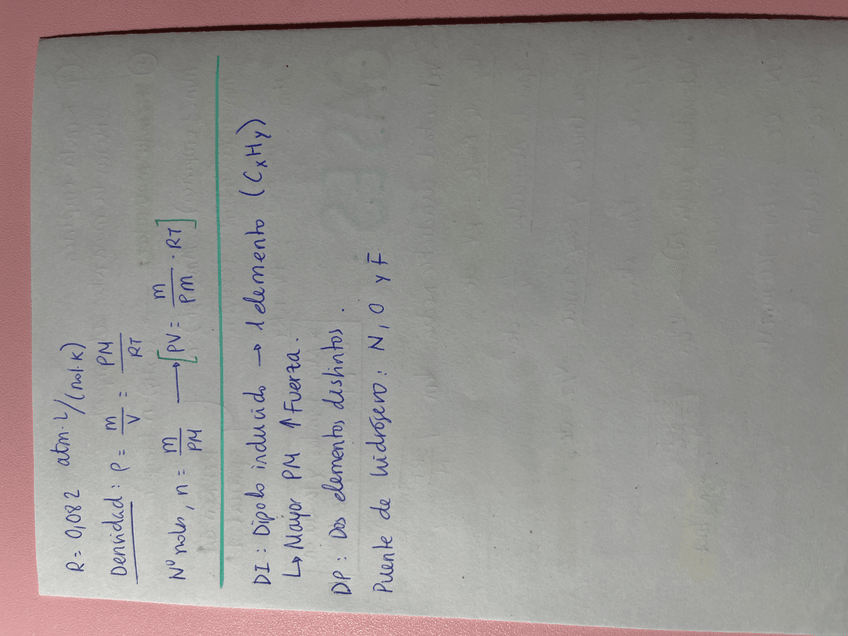 R = 0,082 atm·L/(mol·K)
Densidad: ρ = m/V = PM/RT
Nº moles, n = m/PM → [PV = m/PM · RT]
DI: Dipolo inducido → 1 elemento (CxHy)
↳ Mayor PM ↑ Fuerza.
DP: Dos elementos distintos.
Puente de hidrógeno: N, O y F